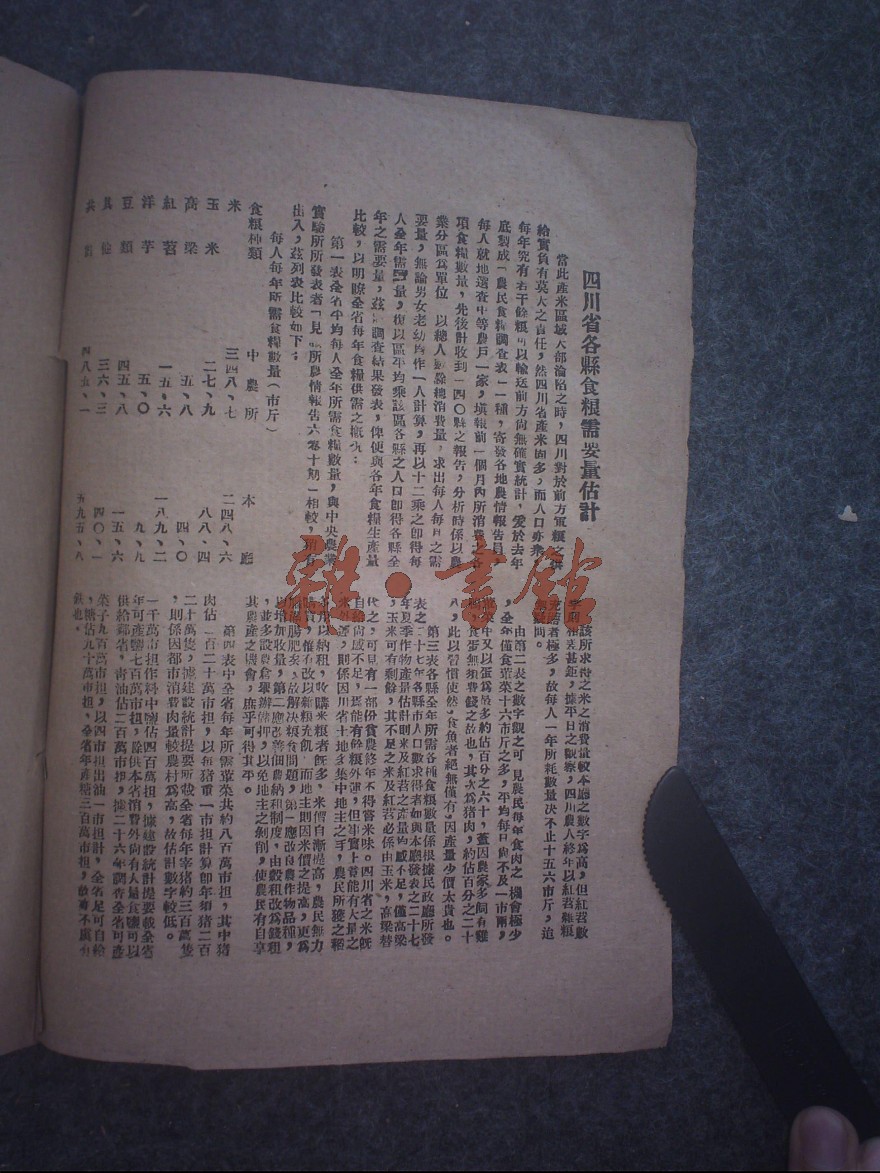 四川省各縣食粮需要量估計
當此產米區域大部淪陷之時，四川對於前方軍粮之供
給實負有莫大之責任，然四川省產米固多，而人口亦衆
每年究有若干餘粮可以輸送前方尙無確實統計，爰於去年
底製成「農民食粮調查表」一種，寄發各地農情報告員
每人就地選查中等農戶一家，填報前一個月內所消費之各
項食粮數量，先後計收到一四〇縣之報告，分析時係以農
業分區爲單位 以總人數除總消費量，求出每人每月之需
要量，無論男女老幼均作一人計算，再以十二乘之卽得每
人全年需要量，復以區平均乘該區各縣之人口卽得各縣全
年之需要量，茲將調查結果發表，俾便與各年食糧生產量
比較，以明瞭全省每年食糧供需之概況：
第一表全省平均每人全年所需食糧數量，與中央農業
實驗所所發表者「見該所農情報告六卷十期」相較，稍有
出入，茲列表比較如下：
每人每年所需食糧數量（市斤）
食粮种類 中農所 本廳
米 三四八、七 二四八、六
玉米 二七、九 八八、四
高梁 五、八 四、〇
紅苕 一五、六 一八九、二
洋芋 五、〇 九、九
豆類 四五、八 一五、六
其他 三六、三 四〇、一
共計 四八五、一 五九五、八
該所求得之米之消費量較本廳之數字爲高，但紅苕數
字則相差甚鉅，據平日之觀察，四川農人終年以紅苕雜粮
充膳者極多，故每人一年所耗數量決不止十五六市斤，迨
無疑問。
由第二表之數字觀之可見農民每年食肉之機會極少
，全年僅食葷菜十六市斤之多，平均每日尙不及一市兩，
葷菜中又以蛋爲最多約佔百分之六十，蓋因農家多飼有雞
鴨，食蛋無須費錢之故也，其次爲猪肉，約佔百分之二十
八，此以習慣使然，食魚者絕無僅有，因產量少價太貴也。
第三表各縣全年所需各種食粮數量係根據民政廳所發
表之二十七年各縣市人口數求得者如與本廳發表之二十七
年夏季作物產量估計則米及紅苕之產量均感不足，僅高梁
，玉米可有剩餘，其不足之米及紅苕必係由玉米，高梁替
代之，可見有一部份貧農終年不得嘗米味。四川省之米旣
自給尙感不足，焉能有餘粮外運，但事實上尊能有大量之
米外運，則係因川省土地多集中地主之手，農民所獲之稻
多用以納租，收購米粮者旣多，米價自漸提高，農民無力
購買，僅有改以雜粮充飢，而地主則因米價之提高，更爲
腦滿腸肥矣，故解決粮食問題，第一應改良農作物品種，
以增加收量，第二應改善佃農納租制度，由穀租改爲錢租
，並多設農倉舉辦儲押，以免地主之剝削，使農民有自享
其農產之機會，庶乎可得其平。
第四表中全省每年所需葷菜共約八百萬市担，其中猪
肉估一百二十萬市担，以每猪重一市担計算卽年須猪二百
二十萬隻，據建設統計提要所載全省每年宰猪約三百萬隻
，則係因都市消費肉量較農村爲高，故估計數字較低。
一千萬市担作料中鹽估四百萬担，據建設統計提要載全省
年可產鹽七百萬市担，除供本省消費外尙有大量食鹽可以
供給鄰省，菁油佔二百萬市担，據二十六年調查全省可產
菜子九百萬市担，以四市担出油一市担計，全省足可自給
，糖佔九十萬市担，全省年產糖三百萬市担，故亦不虞有
缺也。
雜·書館